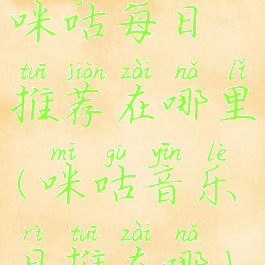 咪咕每日
tuī jiàn zài nǎ lǐ
推荐在哪里
mī gū yīn lè
(咪咕音乐
rì tuī zài nǎ
日推在哪)